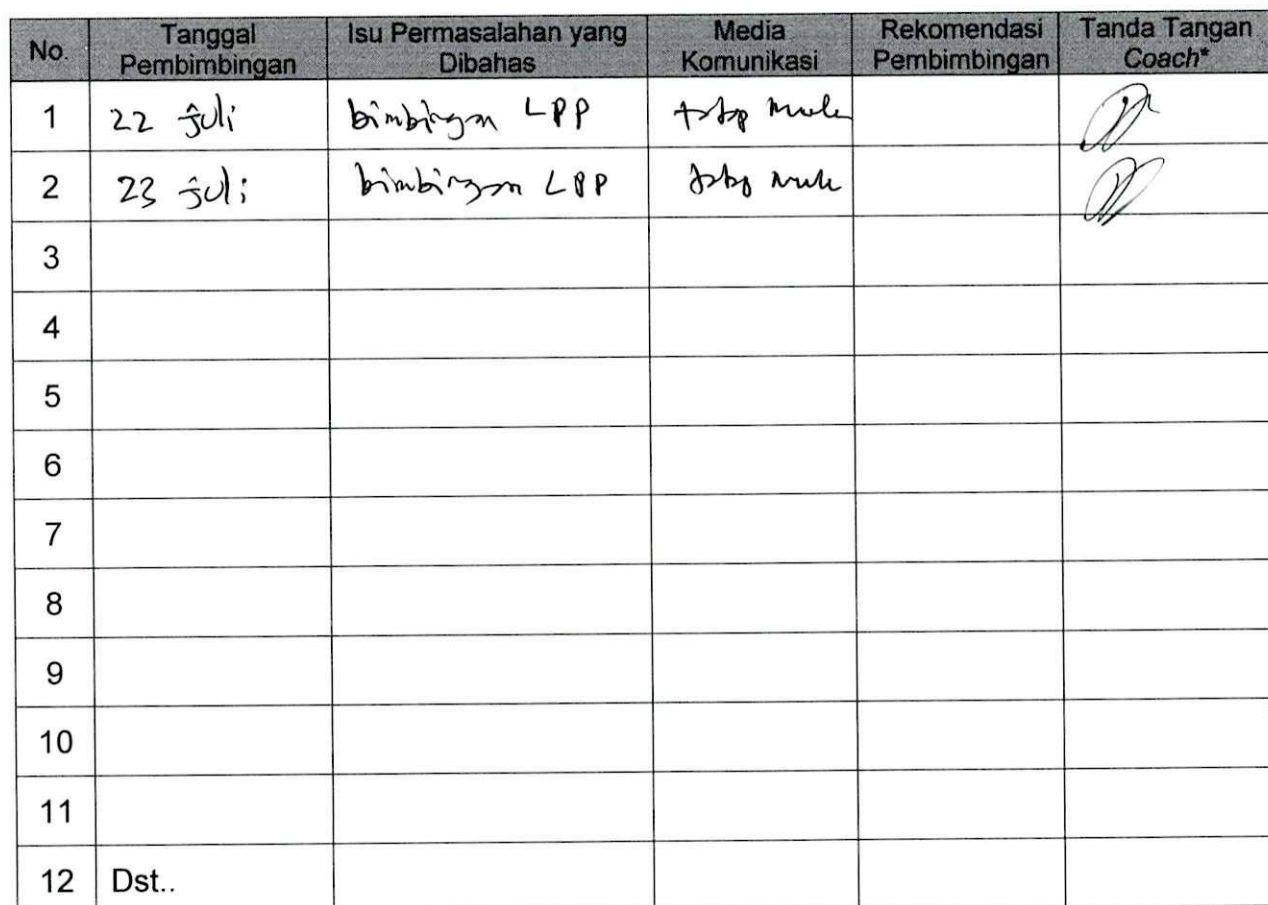 No. Tanggal Pembimbingan Isu Permasalahan yang Dibahas Media Komunikasi Rekomendasi Pembimbingan Tanda Tangan Coach*
1 22 juli bimbingan LPP tatap muka
2 23 juli bimbingan LPP tatap muka
3
4
5
6
7
8
9
10
11
12 Dst..